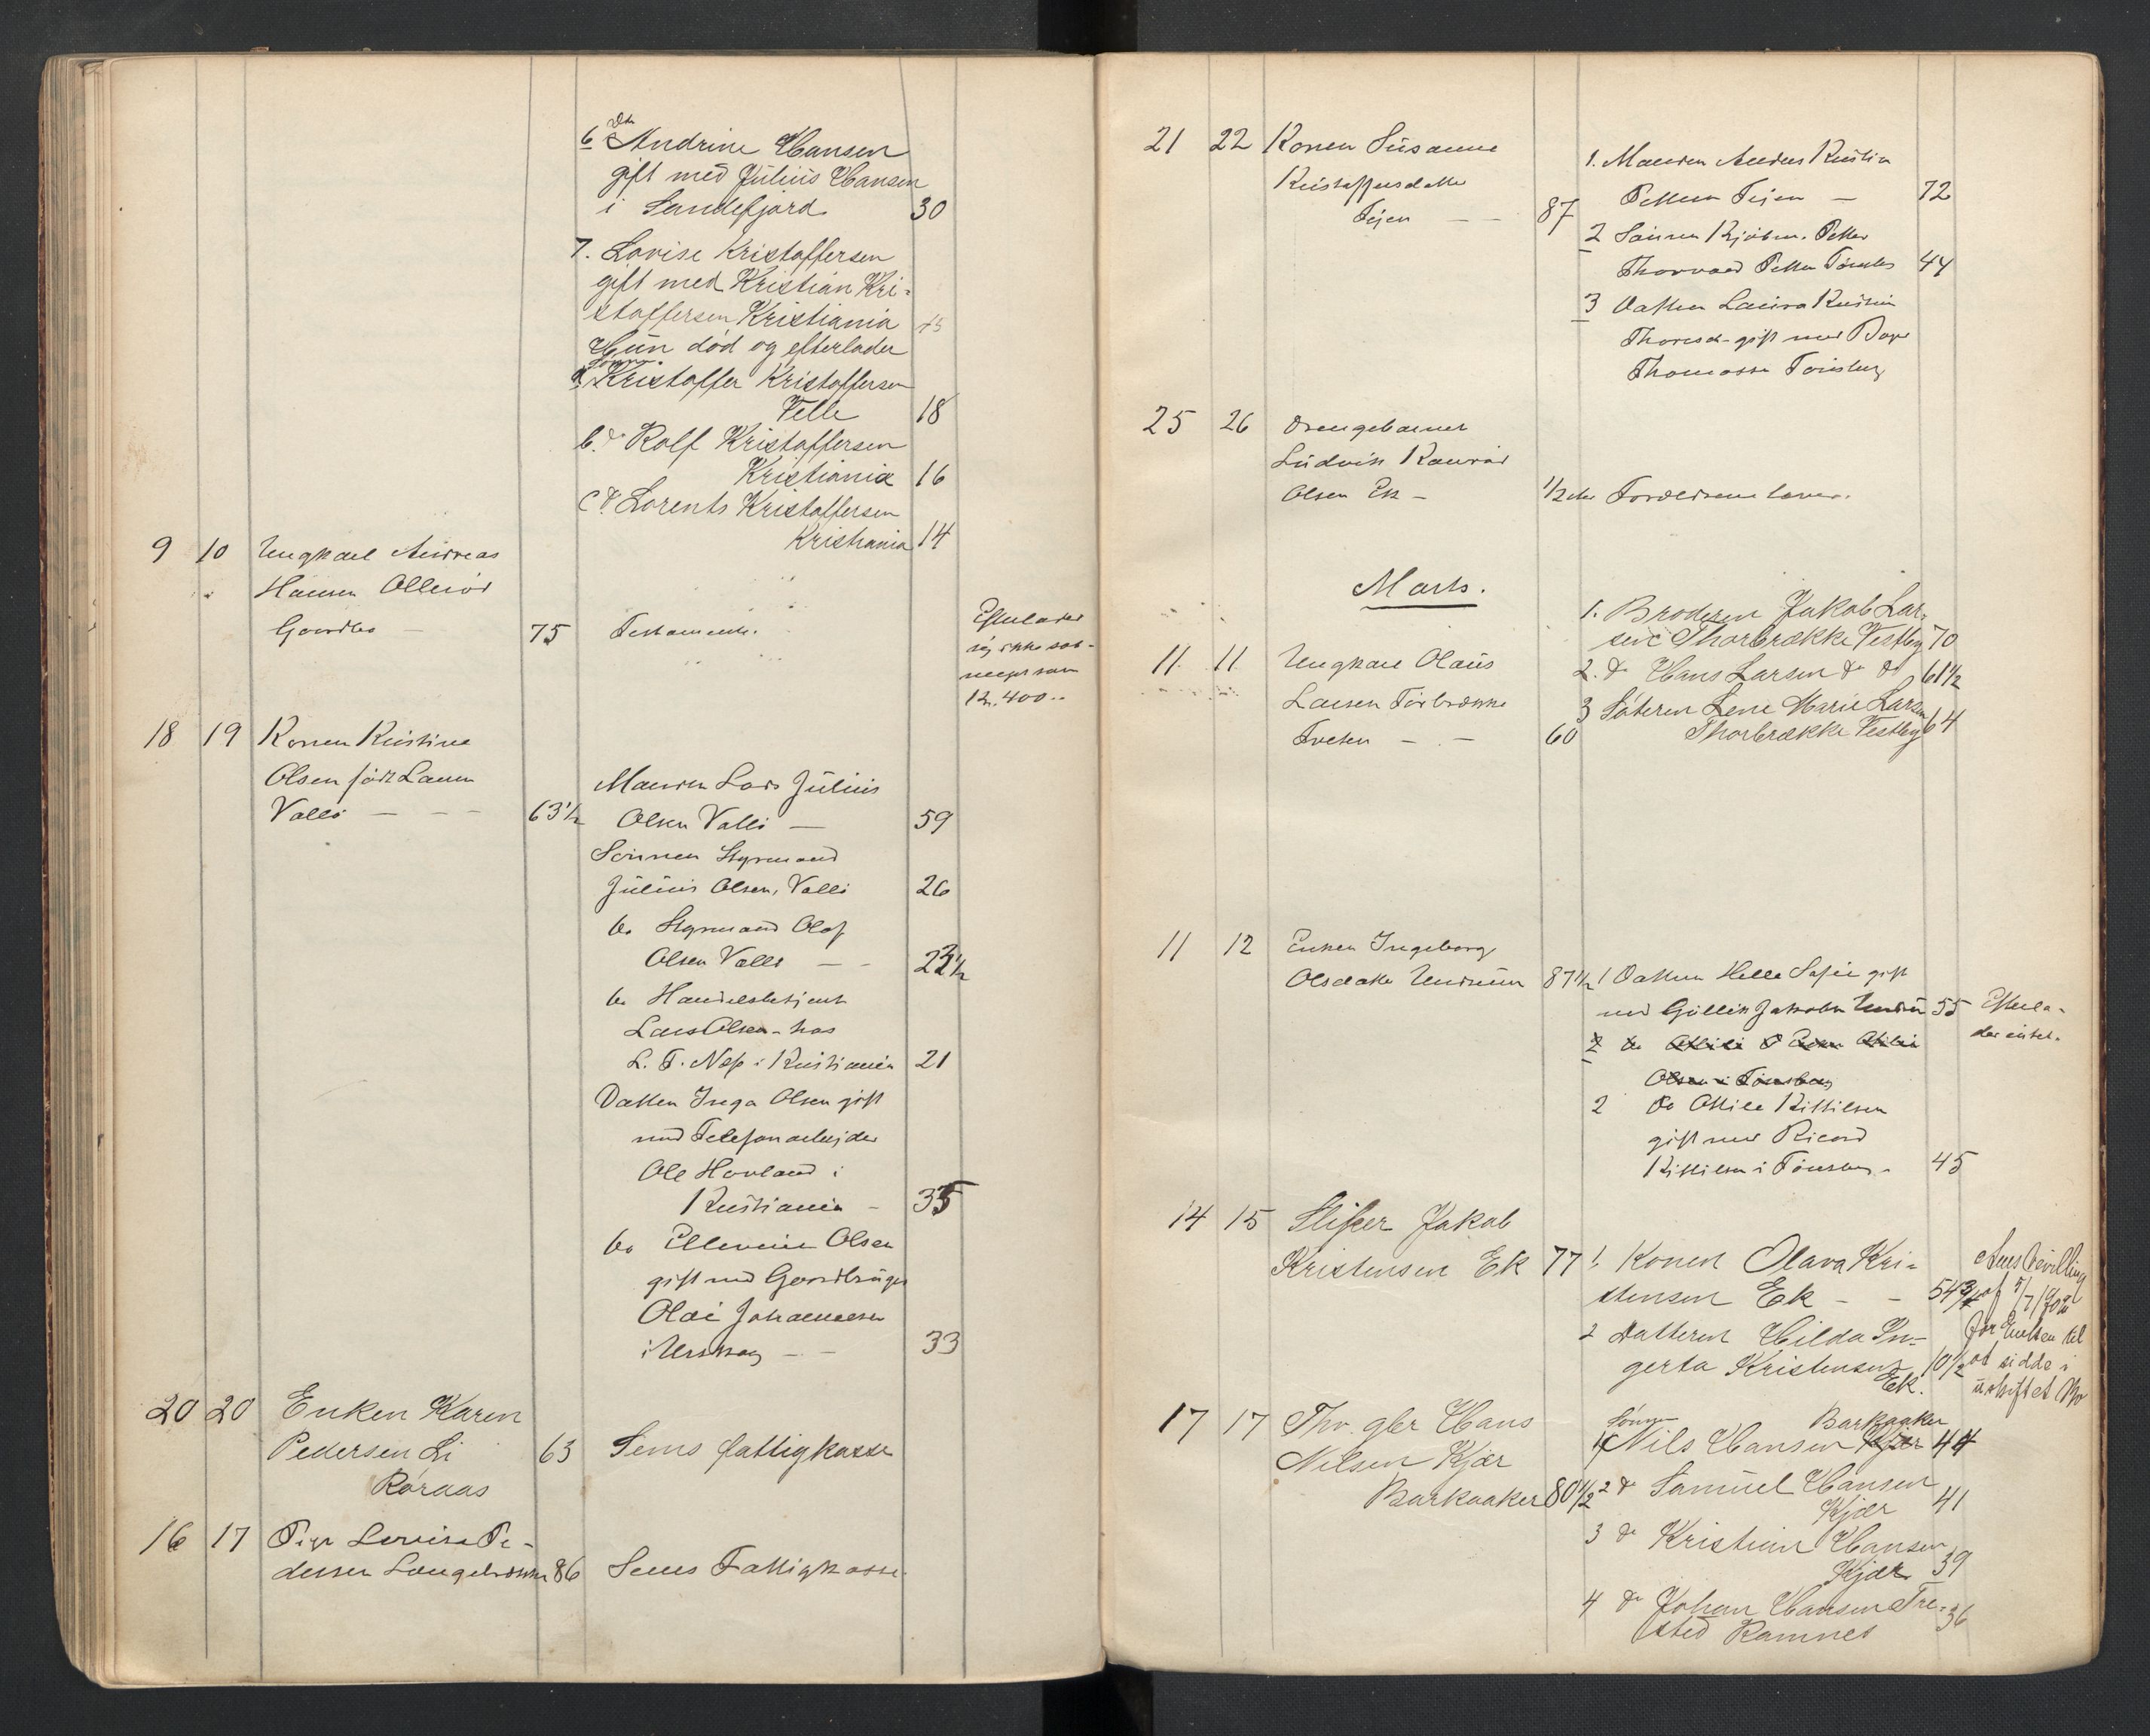 6 Do Andrine Hansen
gift med Julius Hansen
i Sandefjord 30
7. Lovise Kristoffersen
gift med Kristian Kri-
stoffersen Kristiania 45
Hun død og efterlader
Sønnen
a. Kristoffer Kristoffersen
Velle 18
b. do Rolf Kristoffersen
Kristiania 16
c do Lorents Kristoffersen
Kristiania 14
9 10 Ungkarl Andreas
Hansen Ollerød
Goordbo 75 Testamente.
Efterlader
sig ikke
12,400..
18 19 Konen Kristine
Olsen født Larsen
Vallø - - - 63 1/2
Manden Lars Julius
Olsen Vallø - 59
Sønnen Styrmand
Julius Olsen, Vallø 26
do Styrmand Olaf
Olsen Vallø - - 22 1/2
do Handelsbetjent
Lars Olsen - hos
L. T. Næs i Kristiania 21
Datten Inga Olsen gift
med Telefonarbejder
Ole Hovland i
Kristiania - 35
do Ellevine Olsen
gift med Goordbruger
Olai Johannesen
i Urskog - - 33
20 20 Enken Karen
Pedersen Li 63 Sems fattigkasse
Røraas
16 17 Pige Lovise Pe-
dersen Langebrække 86 Sems Fattigkasse
21 22 Konen Susanne
Kristoffersdatter
Tejen - - 87
1. Manden Anders Kristian
Pettersen Tejen - 72
2 Sønnen Kjøbm. Petter
Thorvald Petter Tønsberg 44
3 Datten Laura Kristin
Thoresd. gift med
Thomassen Tønsberg
25 26 Drengebarnet
Ludvik Konrad
Olsen Ek - 1/2 Forældrene lever.
Marts.
11. 11. Ungkarl Olaus
Larsen Torbrække
Tveten - . - 60
1. Broderen Jakob Lar-
sen Thorbrække Vestby 70
2. do Hans Larsen do do 61 1/2
3 Søsteren Lene Marie Larsen
Thorbrække Vestby 64
11 12 Enken Ingeborg
Olsdatter Undrum 87 1/2
1 Datten Helle Sofie gift
med Gullik Jakobsen Undrum 55 Efterla-
der intet.
2 do
Olsen i Tønsberg
2 do Otilie Kittilsen
gift med Ricard
Kittilsen i Tønsberg - 45
14 15 Sliper Jakob
Kristensen Ek 77
1. Konen Olava Kri-
stensen Ek - - 54 3/4
2 Datteren Hilda In-
gerta Kristensen 10 1/2
Ek.
Amts bevilling
af 5/7 1902
for Enken til
at sidde i
uskiftet Bo
17 17 Fhv. gbr Hans
Nilsen Kjær
Barkaaker 80 1/2
Sønnen Barkaaker
1 Nils Hansen Kjær 44
2 do Samuel Hansen
Kjær 41
3 do Kristian Hansen
Kjær 39
4 do Johan Hansen Tre- 36
sted Ramnes